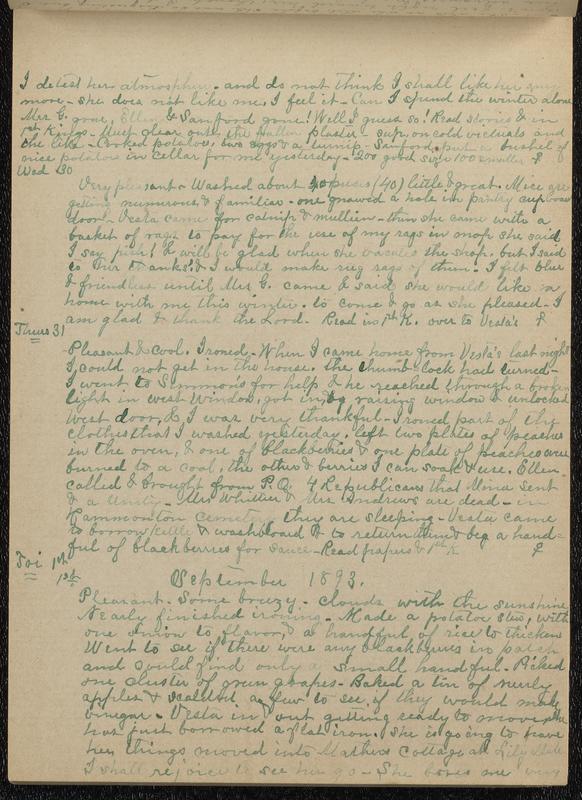 I detest her atmosphere - and do not think I shall like her any
more - she does not like me, I feel it - Can I spend the winter alone
Mrs G. gone, Ellen & Sanford gone! Well I guess so! Read stories & in
1st Kings - Must clear out the fallen plaster - sup. on cold victuals and
the like - Cooked potatoes, two eggs & a turnip - Sanford put a bushel of
nice potatoes in cellar for me yesterday - 200 good size 100 smaller
Wed 30
Very pleasant - Washed about 40 pieces (40) little & great. Mice are
getting numerous & familiar - one gnawed a hole in pantry cupboard
door - Vesta came for catnip & mullein - then she came with a
basket of rags to pay for the use of my rags in mop she said
I say pish! & will be glad when she vacates the shop, but I said
to her thanks! & I would make rug rags of them. I felt blue
& friendless until Mrs G. came & said she would like a
home with me this winter. to come & go as she pleased - I
am glad & thank the Lord. Read in 1st K. over to Vesta's
Thurs 31
Pleasant & cool. Ironed - When I came home from Vesta's last night
I could not get in the house. the thumb lock had turned -
I went to Simmons for help & he reached through a broken
light in west window, got in by raising window & unlocked
west door, & I was very thankful - Ironed part of the
clothes that I washed yesterday, left two plates of peaches
in the oven, & one of blackberries & one plate of peaches were
burned to a coal, the other & berries I can soak & use. Ellen
called & brought from P.O. 4 Republicans that Mona sent
& a Unity - Mrs Whittier & Mrs Andrews are dead - in
Hammonton cemetery they are sleeping - Vesta came
to borrow kettle & washboard & to return them & beg a hand-
ful of blackberries for sauce - Read papers & 1st K
Fri 1st
1st
September 1893.
Pleasant. Some breezy - clouds with the sunshine
Nearly finished ironing - Made a potato stew, with
one onion to flavor, & a handful of rice to thicken
Went to see if there were any blackberries in patch
and could find only a small handful - Picked
one cluster of green grapes - Baked a tin of nearly
apples & scalded a few to see if they would make
vinegar - Vesta in & out getting ready to move she
has just borrowed a flat iron. She is going to have
her things moved into Mathews cottage at Lily
I shall rejoice to see her go - She bores me very